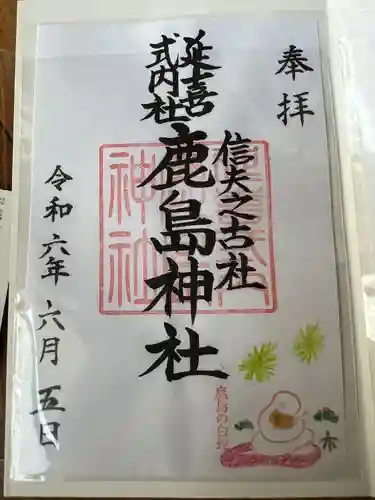 奉拝
信夫之古社
延喜
式内社
鹿島神社
令和六年六月五日